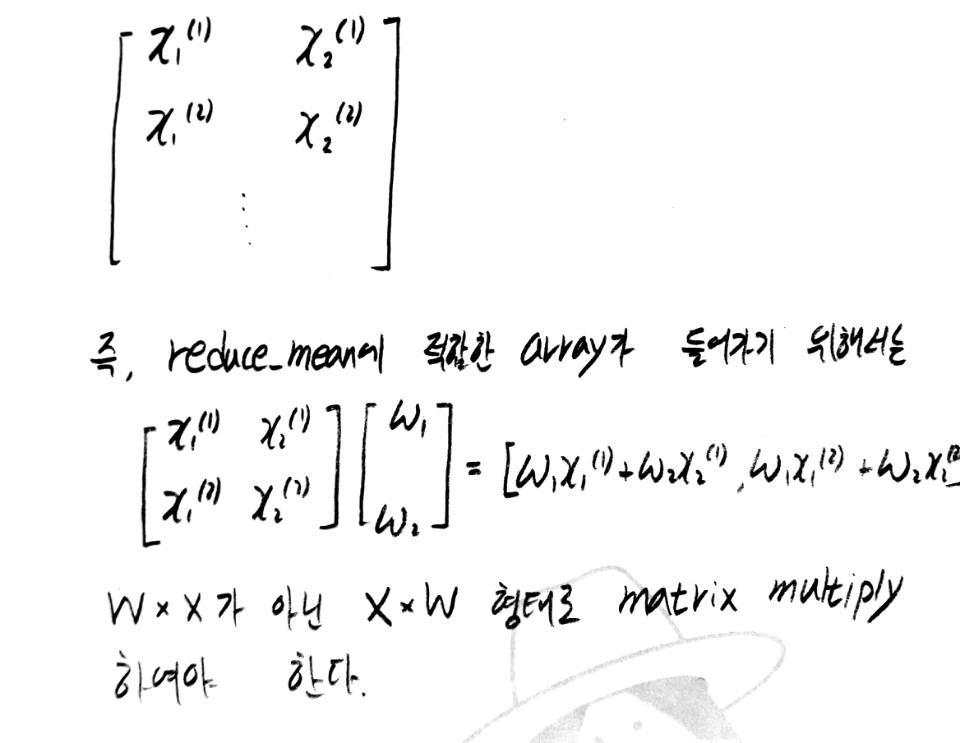 [ x₁⁽¹⁾ x₂⁽¹⁾
x₁⁽²⁾ x₂⁽²⁾
⋮ ]
즉, reduce_mean에 적합한 array가 들어가기 위해서는
[ x₁⁽¹⁾ x₂⁽¹⁾ ; x₁⁽²⁾ x₂⁽²⁾ ] [ w₁ ; w₂ ] = [w₁x₁⁽¹⁾+w₂x₂⁽¹⁾, w₁x₁⁽²⁾+w₂x₂⁽²⁾
W × X가 아닌 X × W 형태로 matrix multiply
하여야 한다.